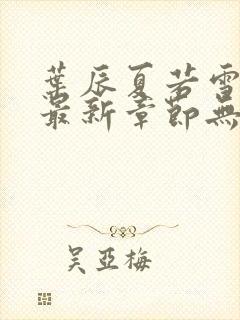 葉辰夏若雪
最新章節無
吳亞梅